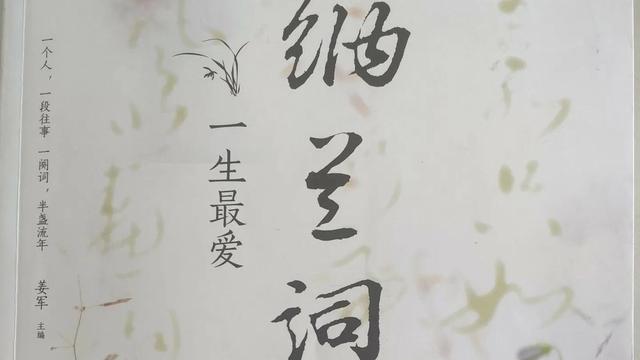 纳兰词
一生最爱
一个人，一段往事 一阕词，半盏流年
姜军 主编